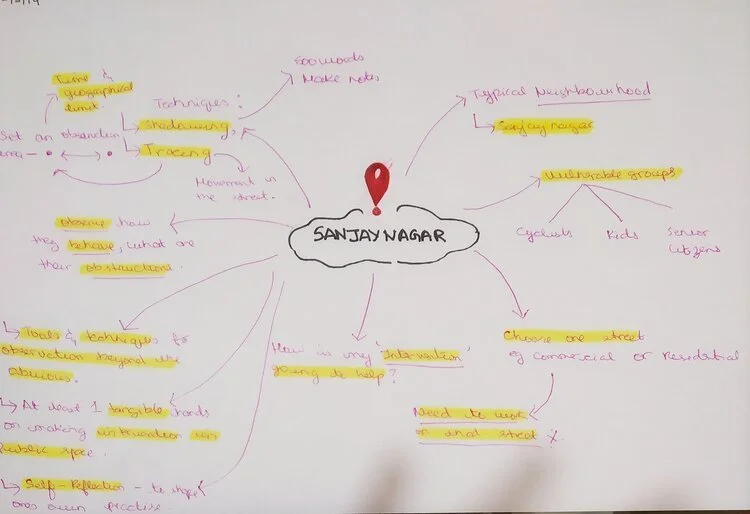 Time &
geographical
limit.
Techniques:
↳ Shadowing,
↳ Tracing
500 words
Make notes
Set an observation
area -
Movement in
the street.
Observe how
they behave, what are
their obstructions.
↳ Tools & techniques for
observation beyond the
obvious.
↳ At least 1 tangible hands
on making intervention in
Public space.
↳ Self-Reflection - to
ones own practise.
SANJAYNAGAR
How is my 'Intervention'
going to help?
Typical Neighbourhood
↳ Sanjaynagar
Vulnerable groups
Cyclists
Kids
Senior
Citizens
Choose one street
eg Commercial or Residential
Need to work
on that street